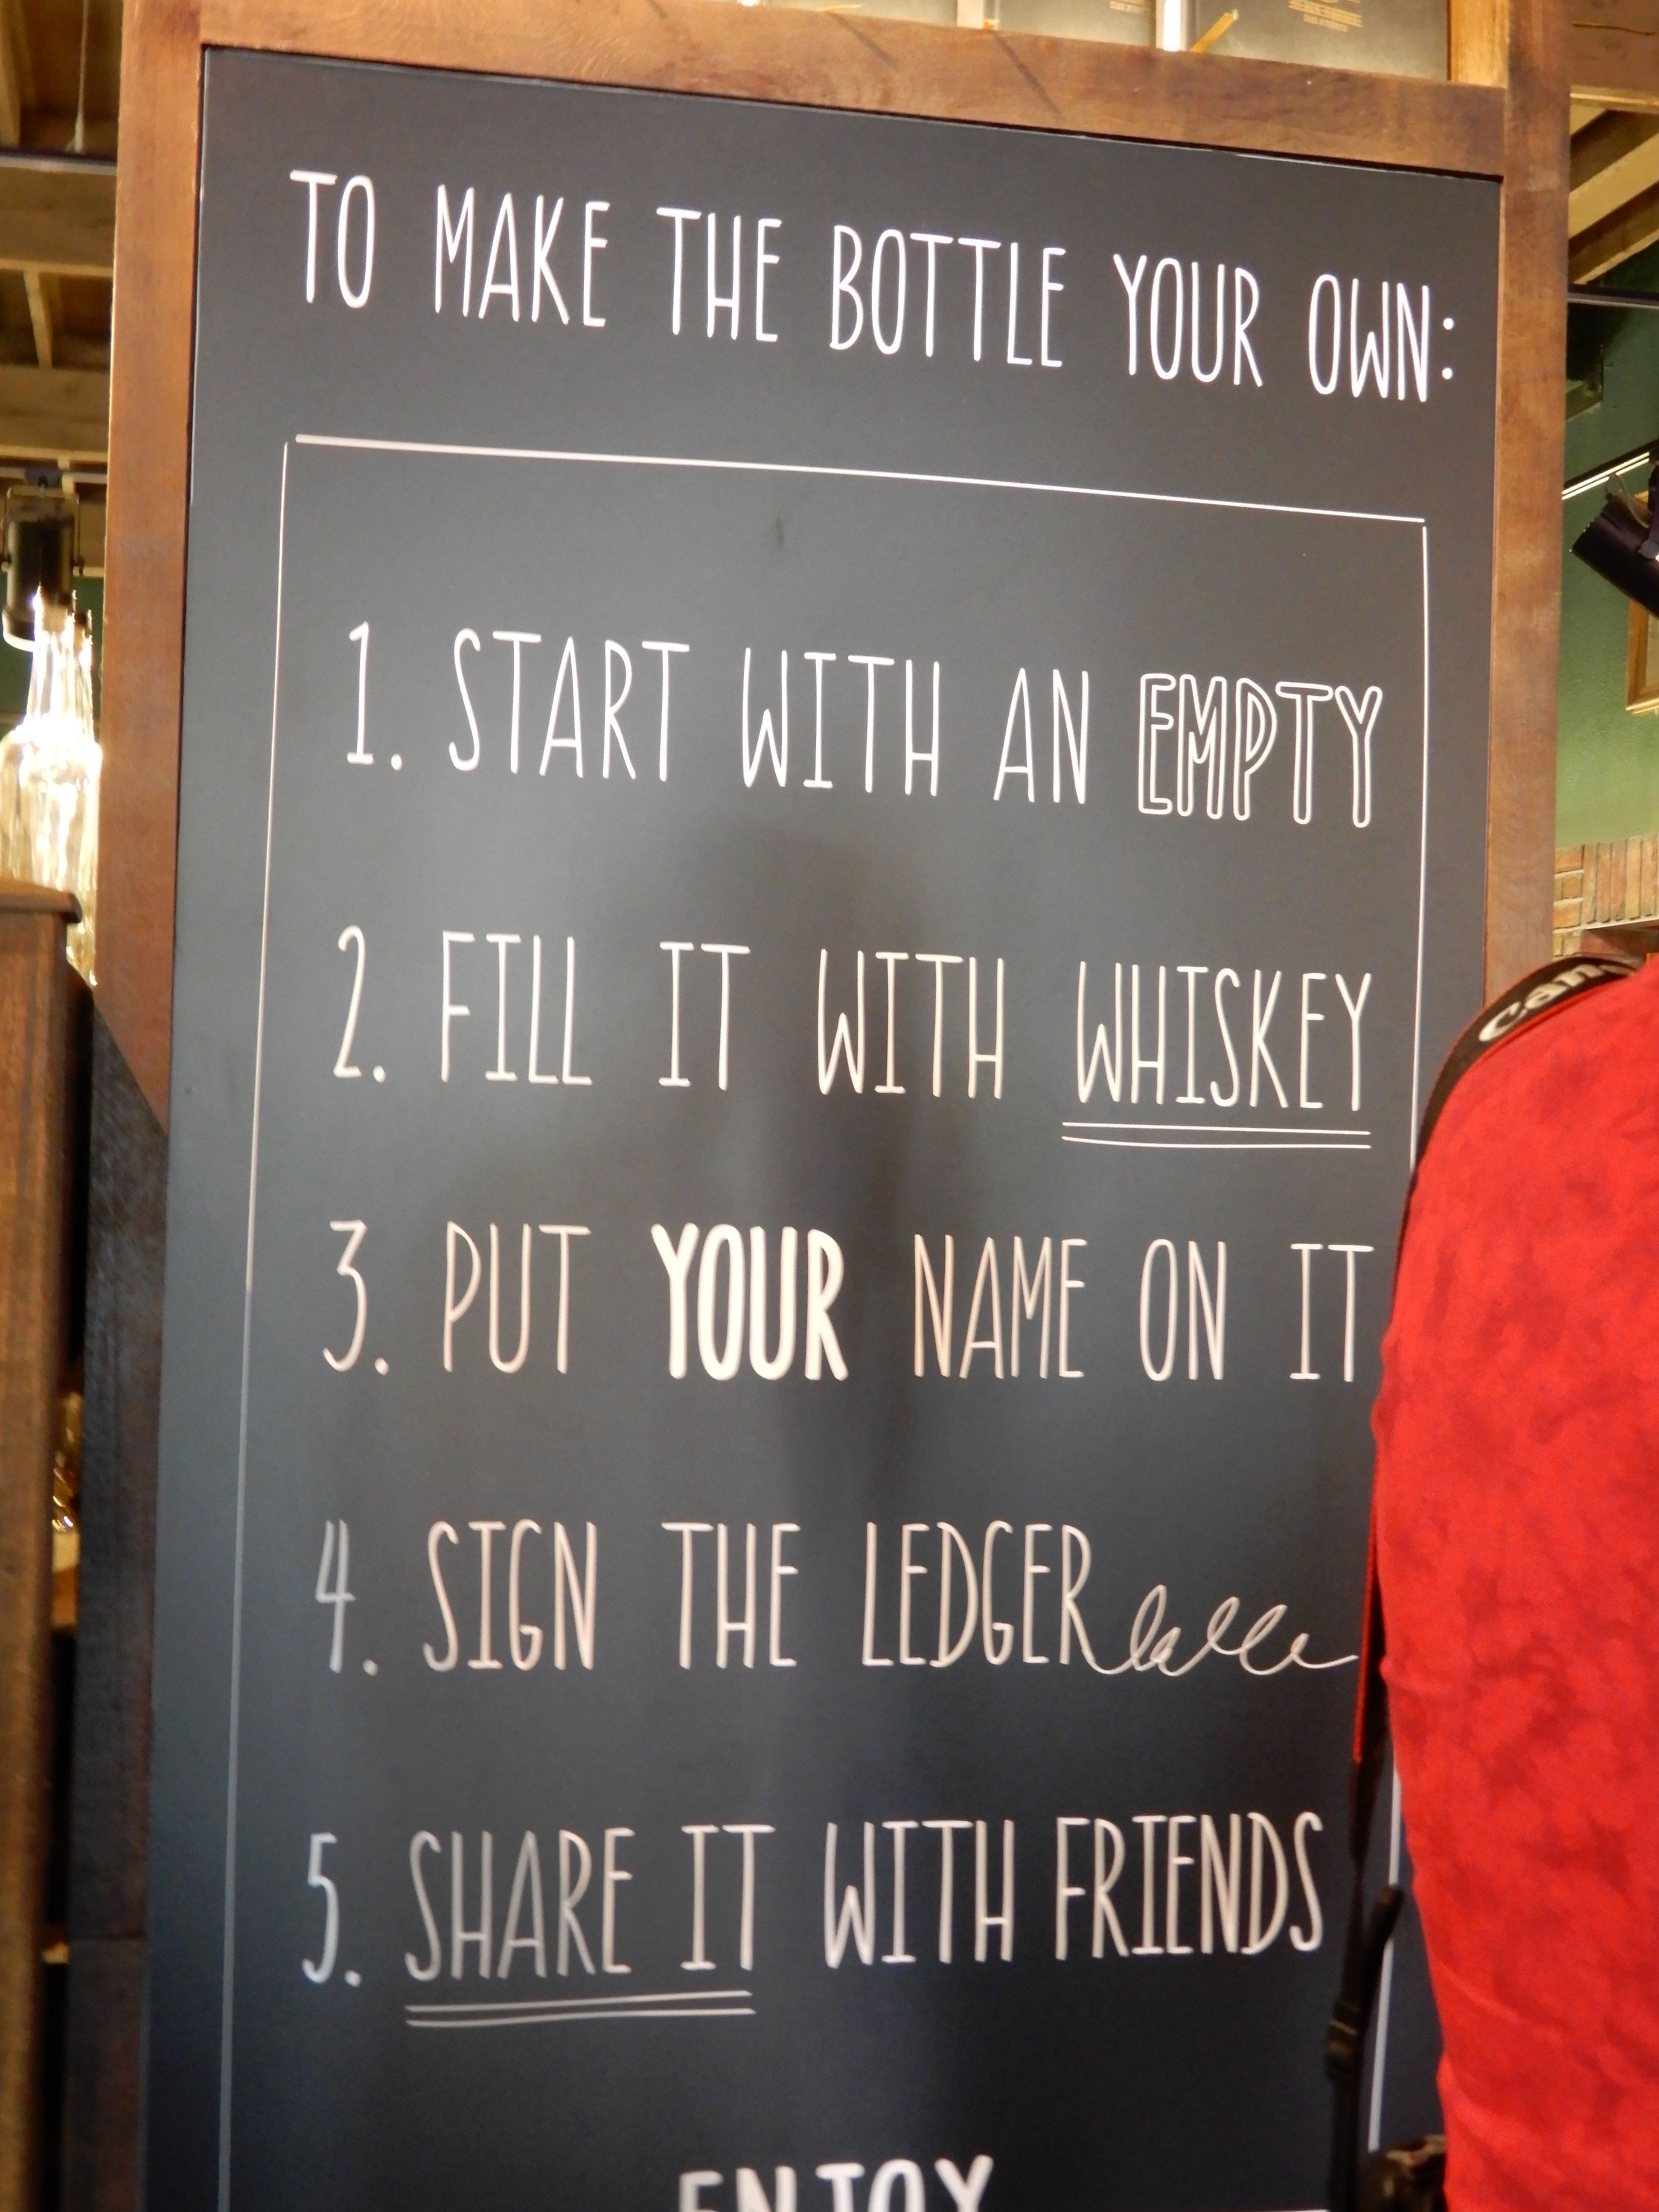 TO MAKE THE BOTTLE YOUR OWN:
1. START WITH AN EMPTY
2. FILL IT WITH WHISKEY
3. PUT YOUR NAME ON IT
4. SIGN THE LEDGER
5. SHARE IT WITH FRIENDS
ENJOY
Canon